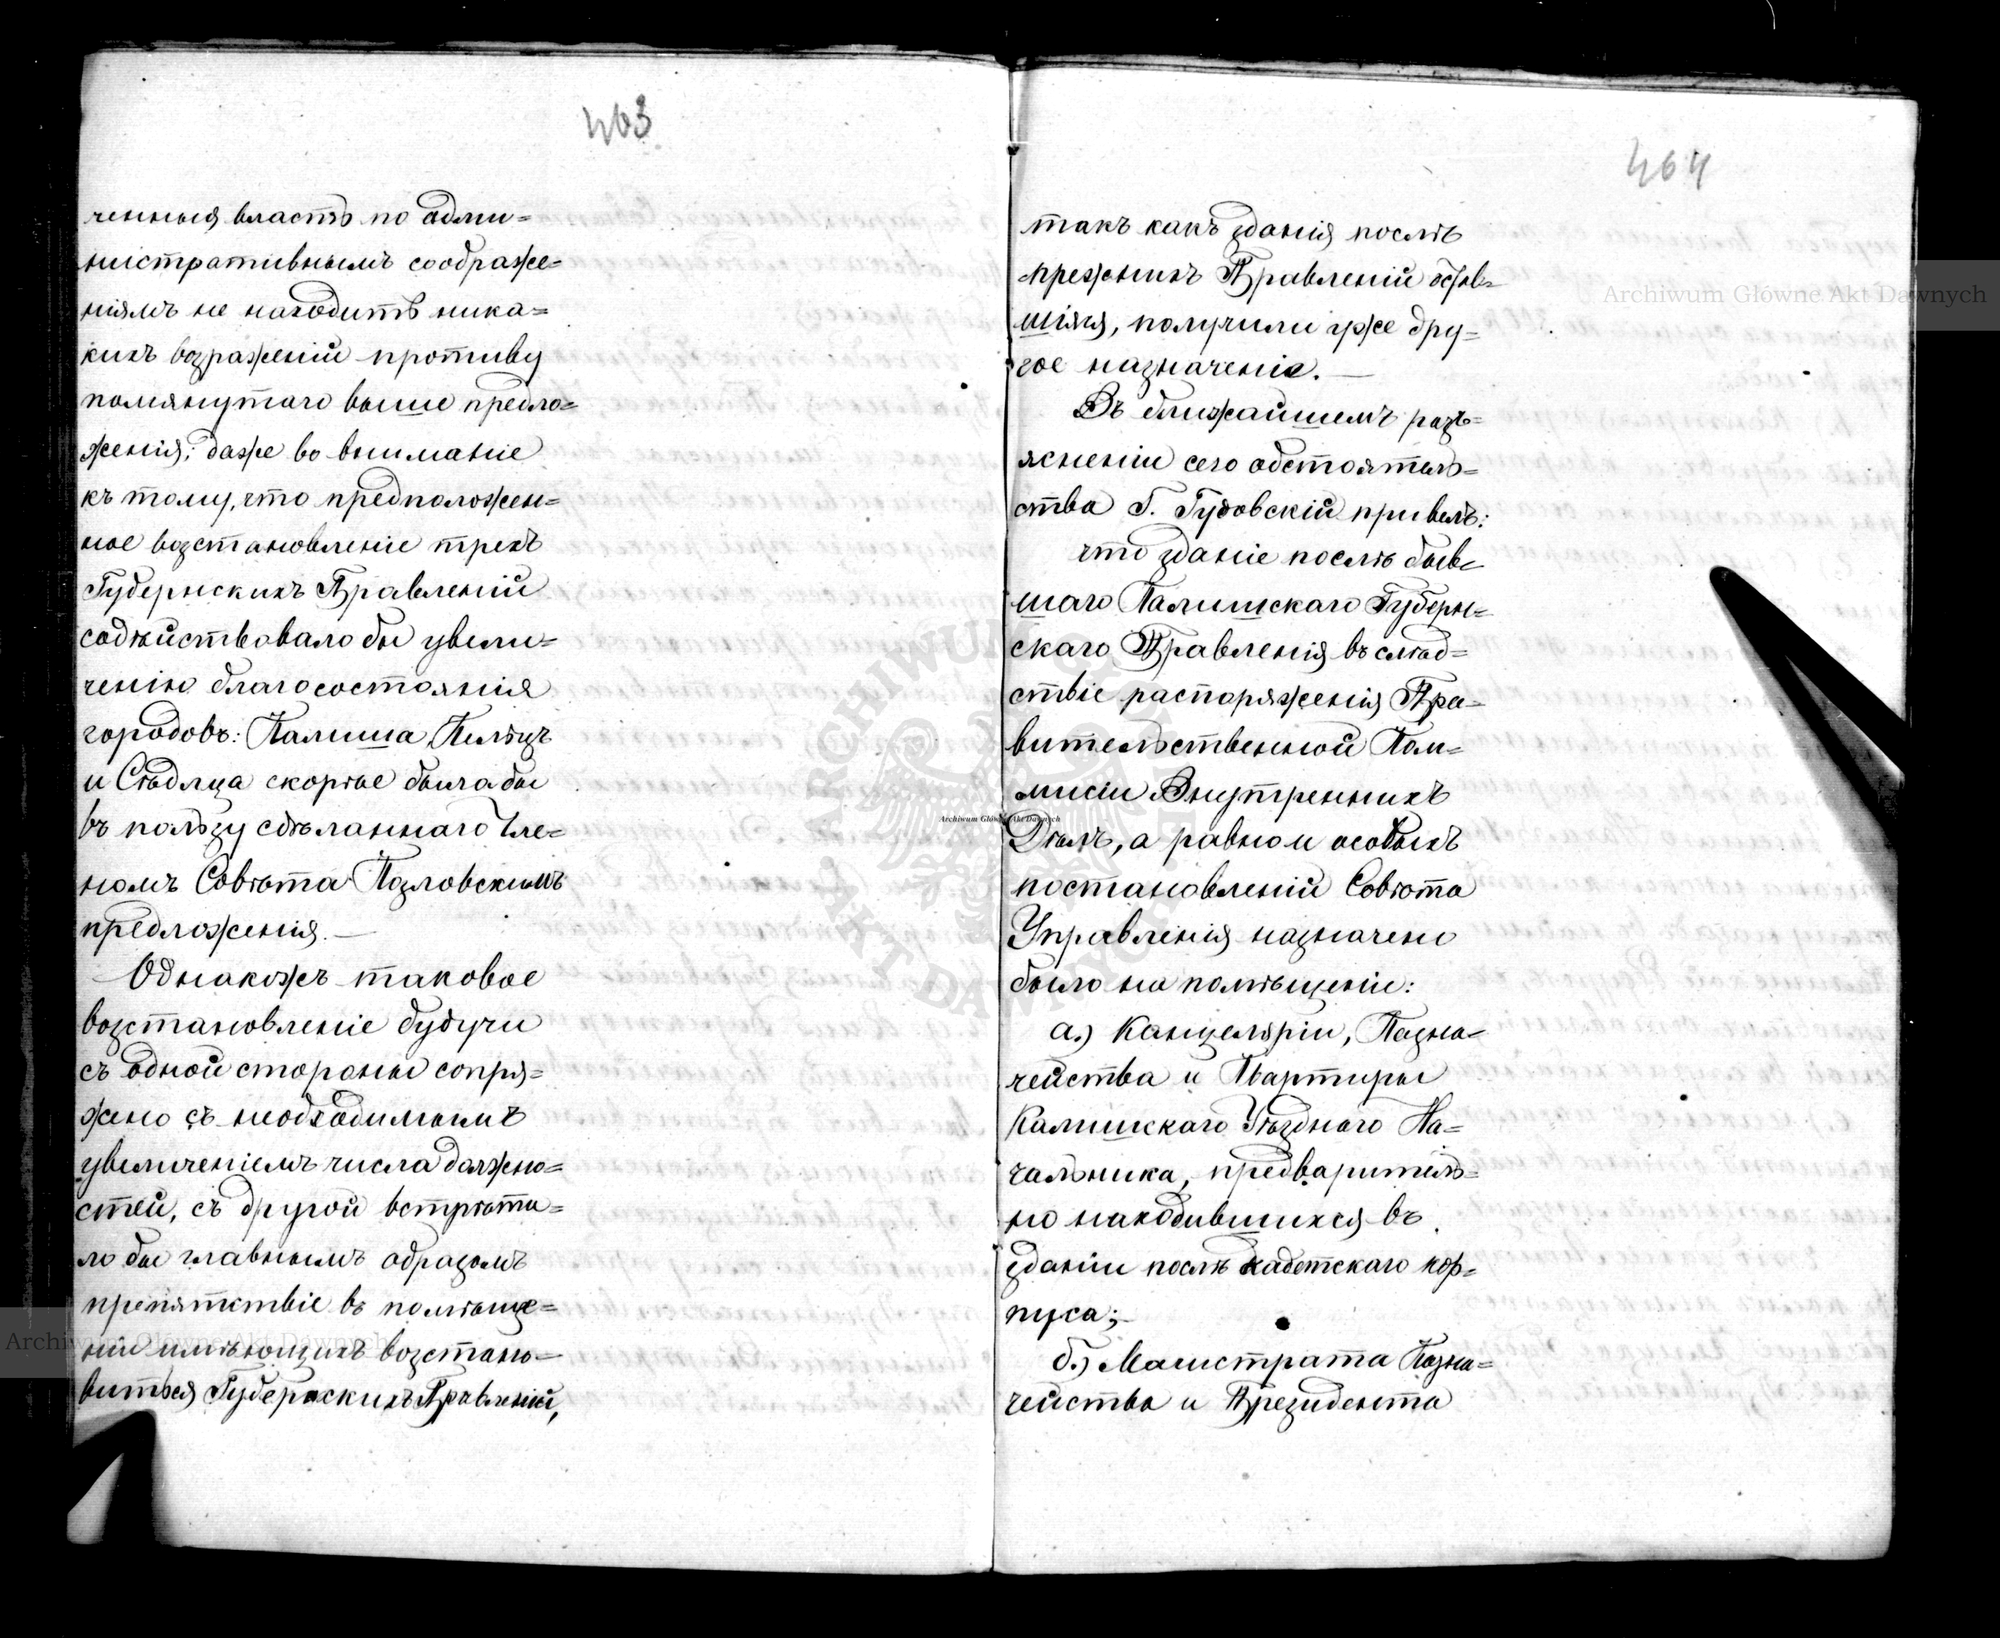 463
ченныя власть по адми=
нистративнымъ соображе=
ніямъ не находитъ ника=
кихъ возраженій противу
помянутаго выше предло=
женія; даже во вниманіе
къ тому, что предположен=
ное возстановленіе трехъ
Губернскихъ Правленій
содѣйствовало бы увели=
ченію благосостоянія
городовъ: Калиша, Кельцъ
и Сѣдлца скорѣе была бы
въ пользу сдѣланнаго Чле=
номъ Совѣта Козловскимъ
предложенія. —
Однакожъ таковое
возстановленіе будучи
съ одной стороны сопря=
жено съ необходимымъ
увеличеніемъ числа должно=
стей, съ другой встрѣти=
ло бы главнымъ образомъ
препятствіе въ помѣще=
ніи имѣющихъ возстано=
виться Губернскихъ Правленій,
464
такъ какъ зданія послѣ
прежнихъ Правленій остав=
шіяся, получили уже дру=
гое назначеніе. —
Въ ближайшемъ разъ=
ясненіи сего обстоятель=
ства Г. Гудовскій привелъ:
что зданіе послѣ быв=
шаго Калишскаго Губерн=
скаго Правленія въ слѣд=
ствіе распоряженія Пра=
вительственной Ком=
мисіи Внутреннихъ
Дѣлъ, а равно и особыхъ
постановленій Совѣта
Управленія назначено
было на помѣщеніи:
а.) Канцеляріи, Казна=
чейства и Квартиры
Калишскаго Уѣзднаго На=
чальника, предваритель=
но находившихся въ
зданіи послѣ кадетскаго кор=
пуса;
б.) Магистрата Казна=
чейства и Президента
Archiwum Główne Akt Dawnych
Archiwum Główne Akt Dawnych
Archiwum Główne Akt Dawnych
ARCHIWUM GŁÓWNE AKT DAWNYCH